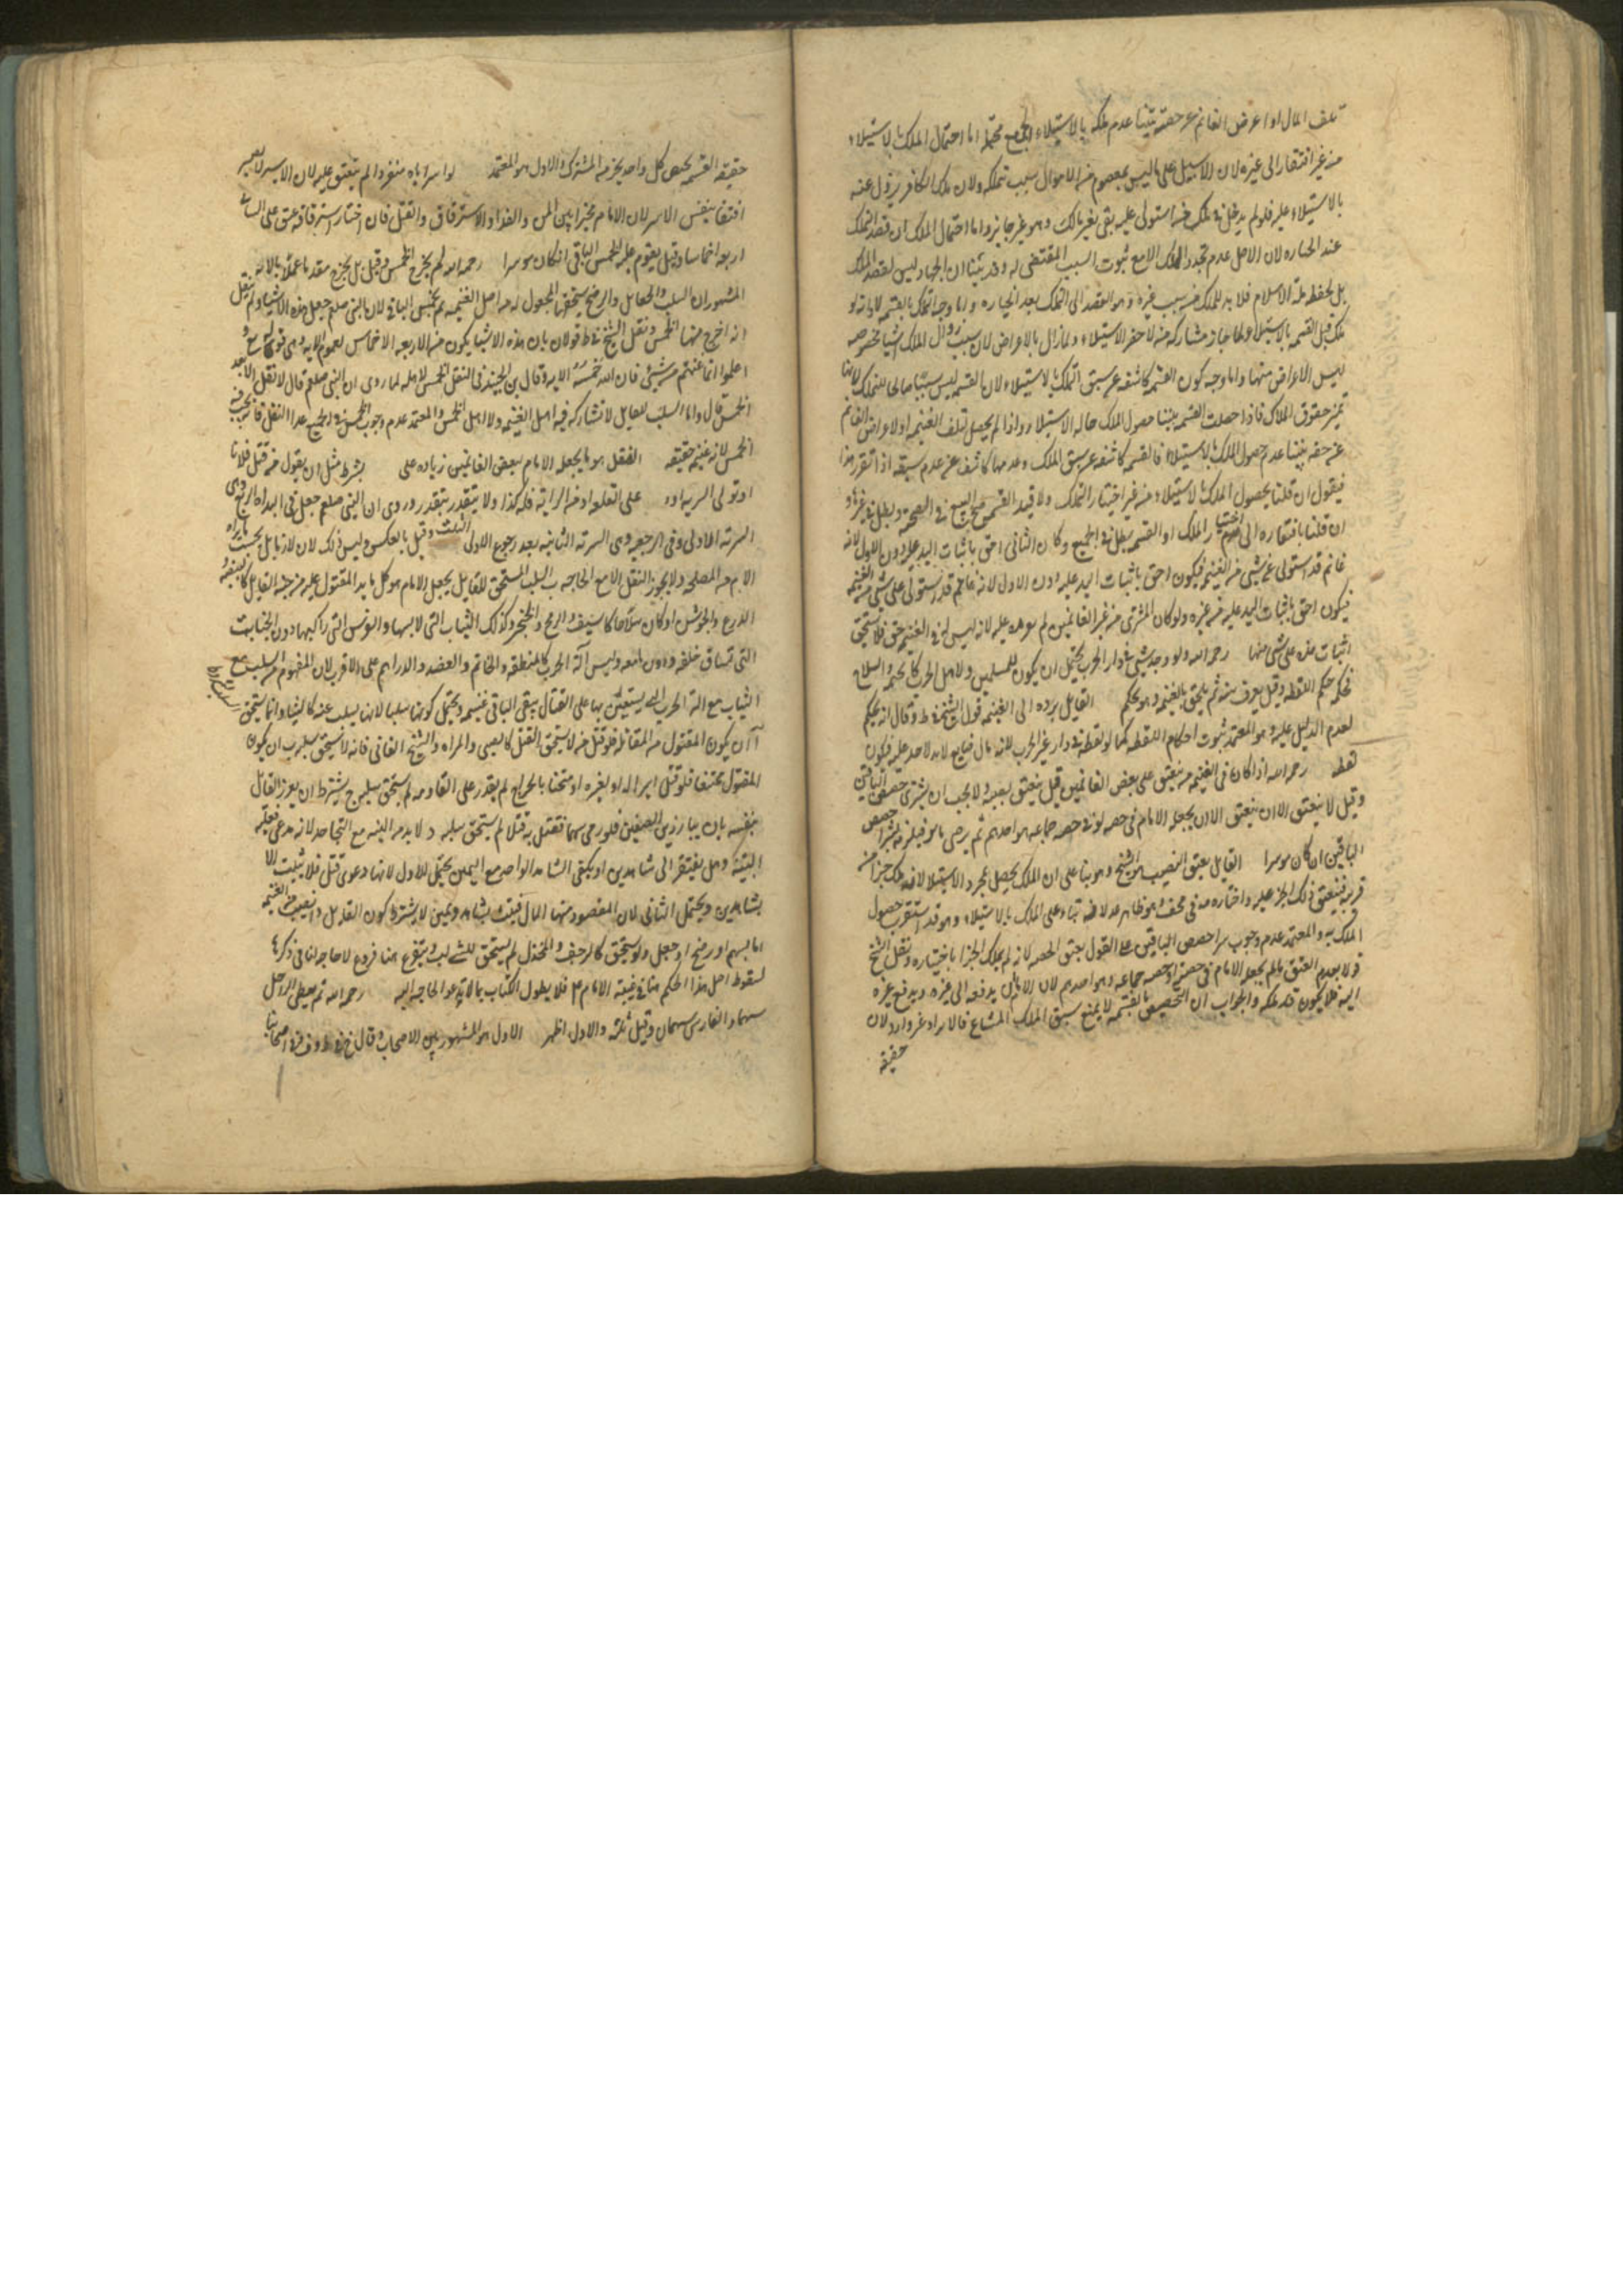 تلف المال او اعرض الغانم عن حقه تبينا عدم ملكه بالاستيلاء الجميع محتمل اما احتمال الملك بالاستيلاء
من غير افتقار الى غيره لان الاستيلاء على ما ليس بمعصوم من الاموال سبب تملكه ولان ملك الكافر يزول عنه
بالاستيلاء عليه فلو لم يدخل في ملك من استولى عليه بقى بغير مالك وهو غير جايز واما احتمال الملك ان قصد التملك
عند الحيازه لان الاصل عدم تجدد الملك الا مع ثبوت السبب المقتضى له وقد بينا ان الجهاد ليس لقصد الملك
بل لحفظ ملة الاسلام فلا بد للملك من سبب غيره وهو القصد الى التملك بعد الحيازه واما وجه التملك بالقسمة لانه لو
ملك قبل القسمه بالاستيلاء لما جاز مشاركه من لاحقه الاستيلاء ولما زال بالاعراض لان سبب زوال الملك اشيا مخصوصه
ليس الاعراض منها واما وجه كون القسمه كاشفه عن سبق التملك بالاستيلاء لان القسمه ليس سببًا صالحا للتملك لانها
تميز حقوق الملاك فاذا حصلت القسمه تبينا حصول الملك حاله الاستيلاء واذا لم يحصل لتلف الغنيمه او لاعراض الغانم
عن حقه تبينا عدم حصول الملك بالاستيلاء فالقسمه كاشفه عن سبق الملك وعدمها كاشف عن عدم سبقه اذا تقرر هذا
فيقول ان قلنا بحصول الملك بالاستيلاء من غير اختيار التملك ولا قيد القسمه صح البيع في الصحه وبطل في غيرها و
ان قلنا بافتقاره الى اختيار الملك او القسمه بطل في الجميع وكان الثانى احق باثبات اليد عليه دون الاول لانه
غانم قد استولى على شيى من الغنيمه فيكون احق باثبات اليد عليه دون الاول لانه غانم قد استولى على شيى من الغنيمه
فيكون احق باثبات اليد عليه من غيره ولو كان المشترى من غير الغانمين لم عليه لانه ليس له في الغنيمه حق فلا يستحق
اثبات يده على شيى منها رحمه الله ولو وجد شيى في دار الحرب يحتمل ان يكون للمسلمين ولاهل الحرب كالخيمه والسلاح
فحكمه حكم اللقطه وقيل يعرف سنه ثم يلحق بالغنيمه وهو تحكم القايل برده الى الغنيمه قول الشيخ في ط وقال انه تحكم
لعدم الدليل عليه وهو المعتمد ثبوت احكام اللقطه كما لو لقطه في دار غير الحرب للنه مال ضايع لا يد لاحد عليه فيكون
لقطه رحمه الله اذا كان في الغنيمه من ينعتق على بعض الغانمين قيل ينعتق نصيبه ولا يجب ان يشترى حصص الباقين
وقيل لا ينعتق الا ان ينعتق الا ان يجعله الامام في حصه او في حصه جماعه هو احدهم ثم يرضى هو فيلزمه شرا حصص
الباقين ان كان موسرا القايل بعتق النصيب هو الشيخ وهو بنا على ان الملك يحصل بمجرد الاستيلاء لانه ملك جزا من
قريبه فينعتق ذلك الجزء عليه واختاره في مخف وهو ظاهر بناء على الملك بالاستيلاء وهو قد استقرب حصول
الملك به والمعتمد عدم وجوب شرا حصص الباقين على القول بعتق الحصه لانه لم يملك الجزا باختياره ونقل الشيخ
قولا بعدم العتق ما لم يجعله الامام في حصته او حصه جماعه هو احدهم لان للامام ان يدفعه الى غيره ويدفع غيره
اليه فلا يكون قد ملكه والجواب ان التخصيص بالقسمه لا يمنع سبق الملك المشاع فالايراد غير وارد لان
حقيقه
حقيقه القسمه تخص كل واحد بجزء من المشترك والاول هو المعتمد لو اسر اباه منفردا لم ينعتق عليه لان الاسير لا يصير
رقيقا بنفس الاسر لان الامام مخير بين المن والفدا والاسترقاق والقتل فان اختار استرقاقه عتق على السابى
اربعه اخماسه وقيل يقوم عليه الخمس الباقى ان كان موسرا رحمه الله ثم يخرج الخمس وقيل بل يخرج مقدما عملا بالايه
المشهور ان السلب والجعايل والرضخ يستحقها المجعول له من اصل الغنيمه ثم يخمس الباقى لان النبى صلعم جعل هذه الاشيا ولم ينقل
انه اخرج منها الخمس ونقل الشيخ في ط قولان بان هذه الاشيا يكون من الاربعه الاخماس لعموم الايه وهى قوله تع و
اعلموا انما غنمتم من شيىء فان لله خمسه الايه وقال بن الجنيد في النفل الخمس لاهله لما روى ان النبى صلعم قال لا نفل الا بعد
الخمس قال واما السلب للقايل لا تشاركه فيه اهل الغنيمه ولا اهل الخمس والمعتمد عدم وجوب الخمس في الجميع عدا النفل فانه يجب فيه
الخمس لانه غنيمه حقيقه النفل هو ما يجعله الامام لبعض الغانمين زياده على بشرط مثل ان يقول من قتل فلانا
او تولى السريه او على القلعه او من الرايه فله كذا ولا يتقدر بتقدر وروى ان النبى صلعم جعل في البداه الربع وهى
السريه الاولى وفى الرجعه وهى السريه الثانيه بعد رجوع الاولى الثلث وقيل بالعكس وليس ذلك لازما بل بحسب ما يراه
الامام من المصلحه ولا يجوز النفل الا مع الحاجه ب السلب المستحق للقايل بجعل الامام هو كل ما يد المقتول عليه من جنة القتال كالبيضه و
الدرع والجوشن او كان سلاحا كالسيف والرمح والخنجر وكذلك الثياب التى لابسها والفرس التى راكبها دون الجنايب
التى تساق خلفه وليس آلة الحرب كالمنطقه والخاتم والعضد والدراهم على الاقرب لان المفهوم من السلب مع
الثياب مع الة الحرب التى يستعين بها على القتال يبقى الباقى غنيمه ويحتمل كونها سلبا لانها يسلب عنه كالثياب وانما يستحق
آ ان يكون المقتول من المقاتله فلو قتل من لا يستحق القتل كالصبى والمراه والشيخ الفانى فانه لا يستحق سلبه ب ان يكون
المقتول ممتنعا فلو قتل اسيرا له او لغيره او مثخنا بالجراح لم يقدر على المقاومه لم يستحق سلبه ج يشترط ان يغرر القاتل
بنفسه بان يبارز بين الصفين فلو رمى سهما فقتل به قتلا لم يستحق سلبه د لا بد من البينه مع التجاحد لانه مدعى فعليه
البينه وهل يفتقر الى شاهدين او يكفى الشاهد الواحد مع اليمين يحتمل الاول لانها دعوى قتل فلا يثبت الا
بشاهدين ويحتمل الثانى لان المقصود منها المال فيثبت بشاهد ويمين لا يشترط كون القايل ذا نصيب من الغنيمه
اما بسهم او رضخ او جعل ولو يستحق كالمرجف والمخذل لم يستحق للسلب ويتفرع هنا فروع لا حاجه لنا فى ذكرها
لسقوط اصل هذا الحكم هنا في غيبة الامام ع فلا يطول الكتاب بما لا تدعوا الحاجه اليه رحمه الله ثم يعطى الراجل
سهما والفارس سهمان وقيل ثلثه والاول اظهر الاول هو المشهور بين الاصحاب وقال في ط وف من اصحابنا